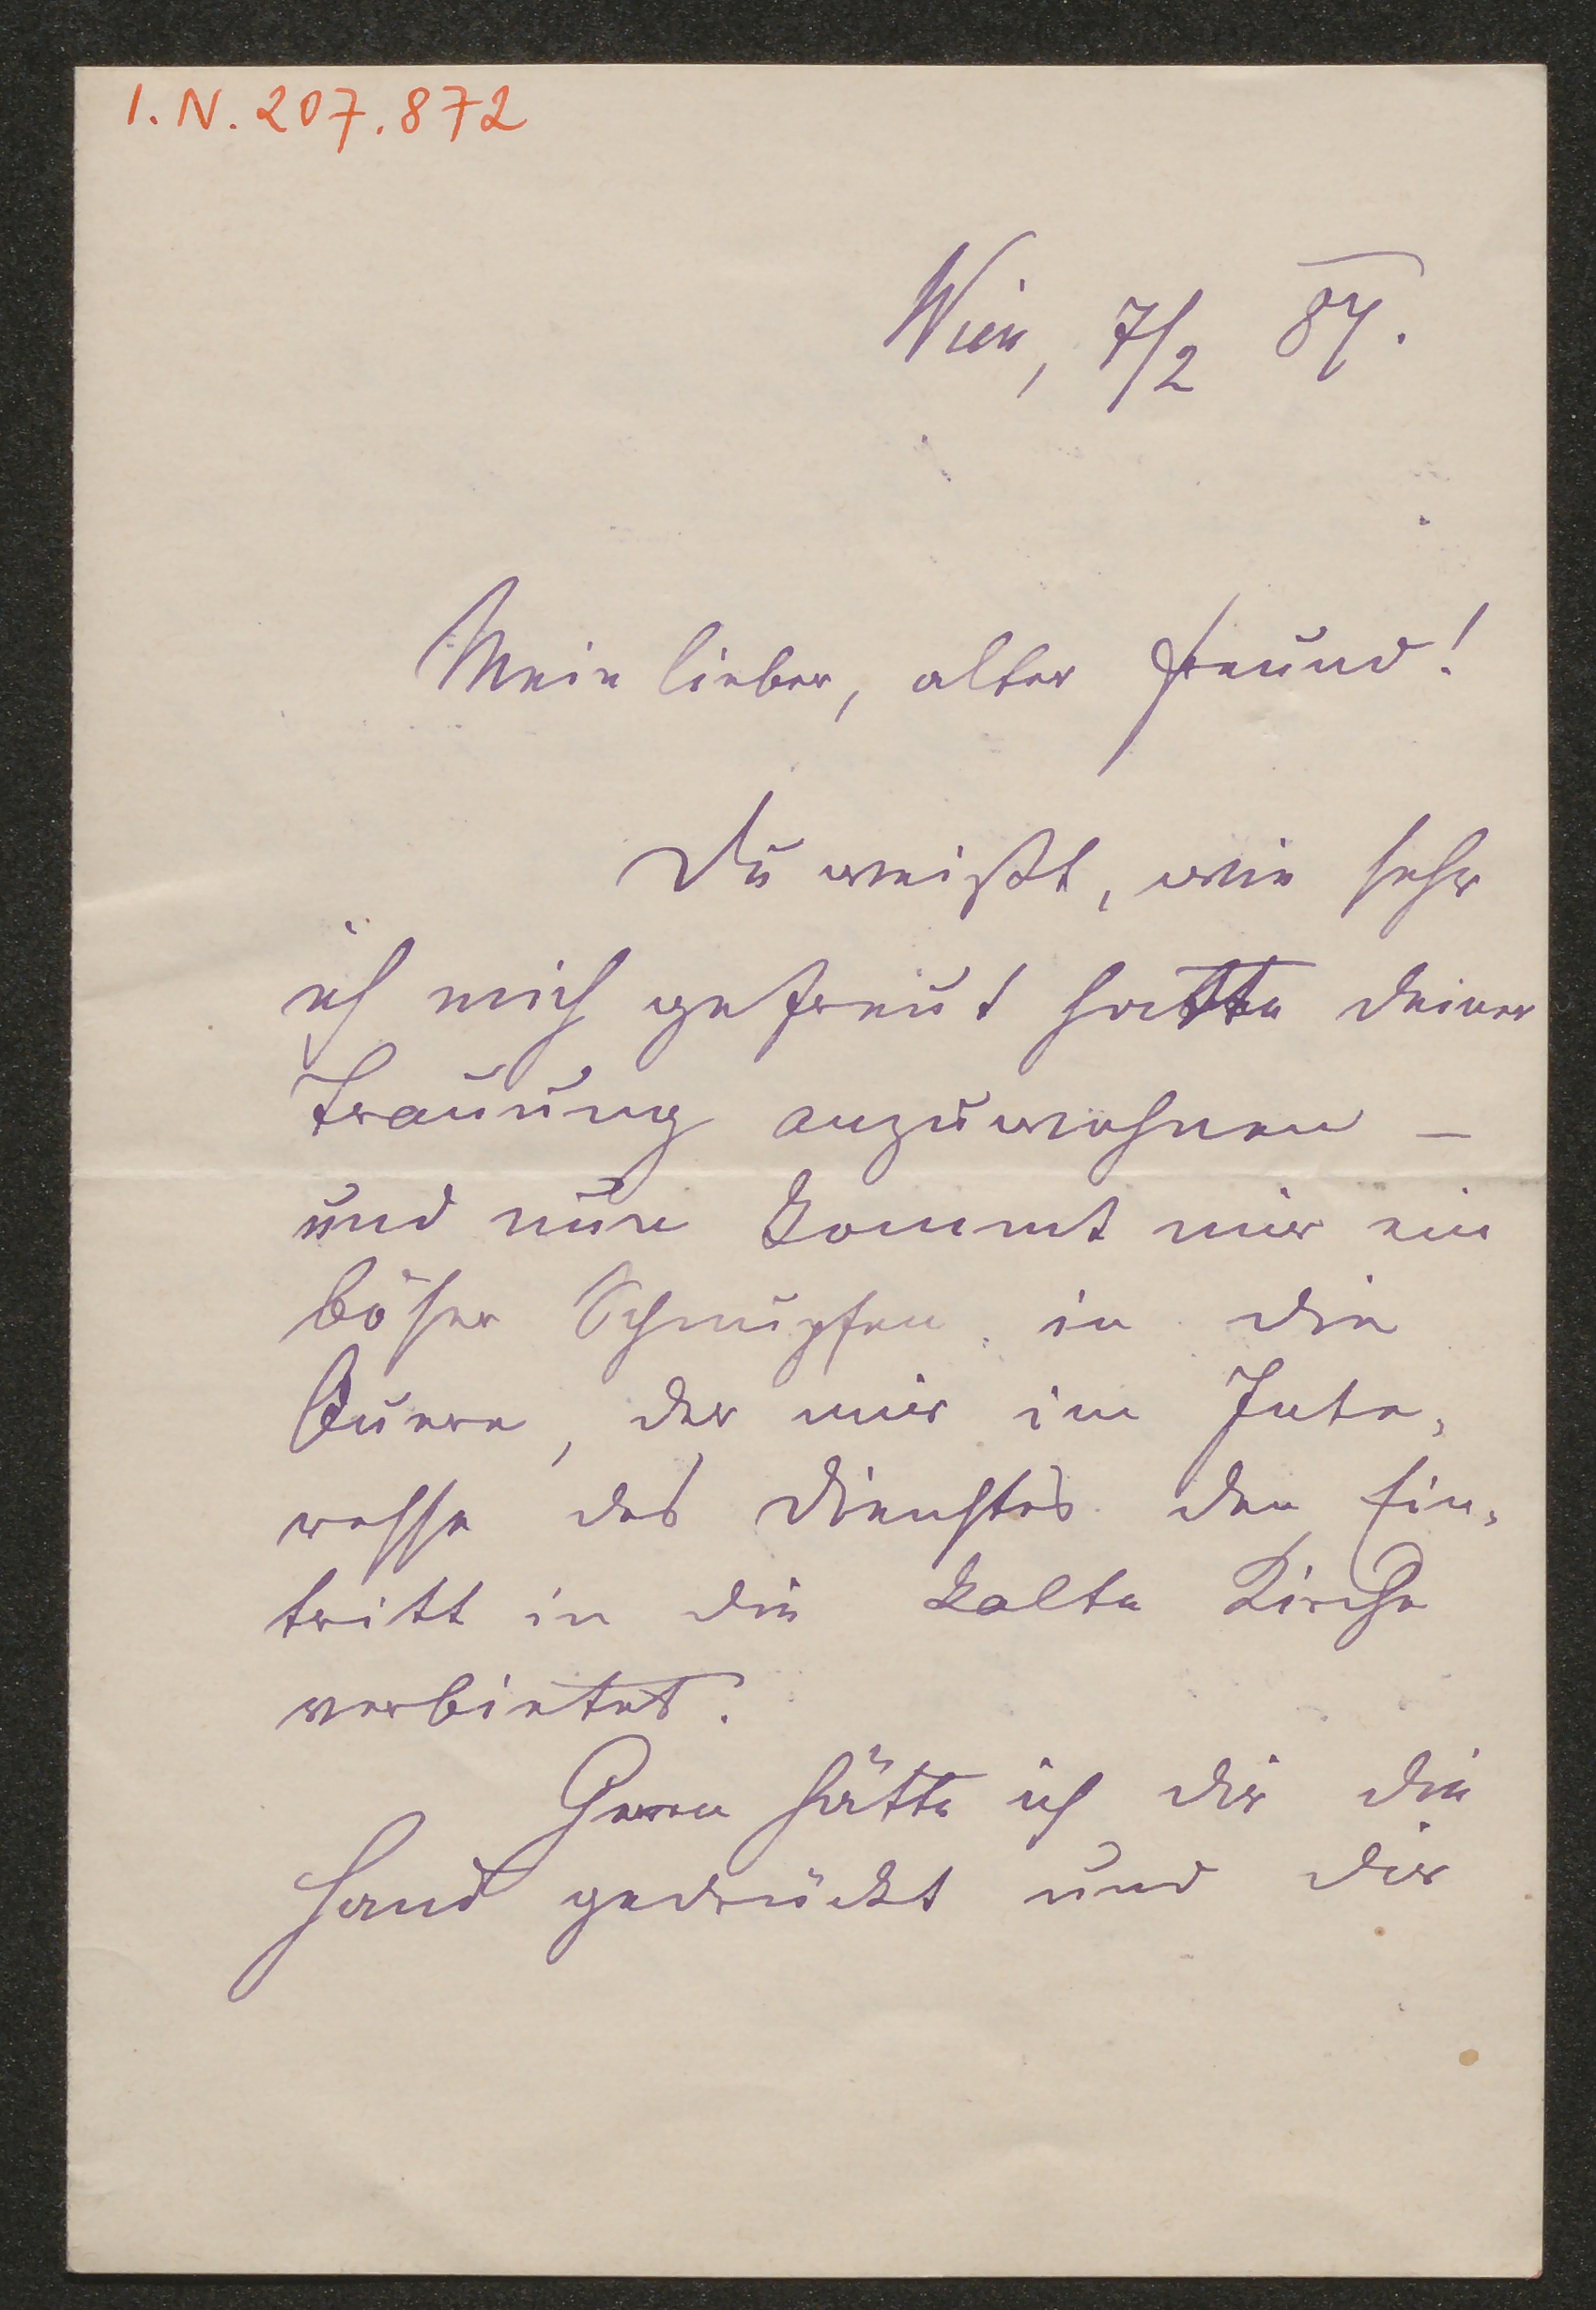 I.N. 207.872
Wien, 7/2 87.
Mein lieber, alter Freund!
Du weißt, wie sehr
ich mich gefreut hatte deiner
Trauung anzuwohnen –
und nun kommt mir ein
böser Schnupfen in die
Quere, der mir im Inte-
resse des Dienstes den Ein-
tritt in die kalte Kirche
verbietet.
Gern hätte ich dir die
Hand gedrückt und dir